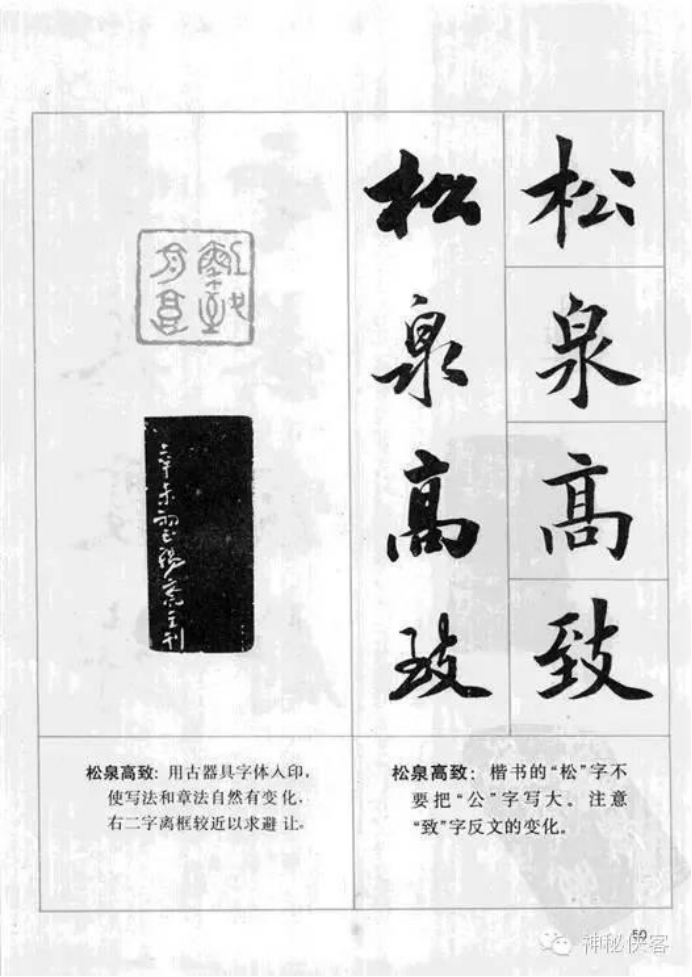 松泉高致
松泉高致
松泉高致：用古器具字体入印，
使写法和章法自然有变化，
右二字离框较近以求避让。
松泉高致：楷书的“松”字不
要把“公”字写大。注意
“致”字反文的变化。
神秘侠客